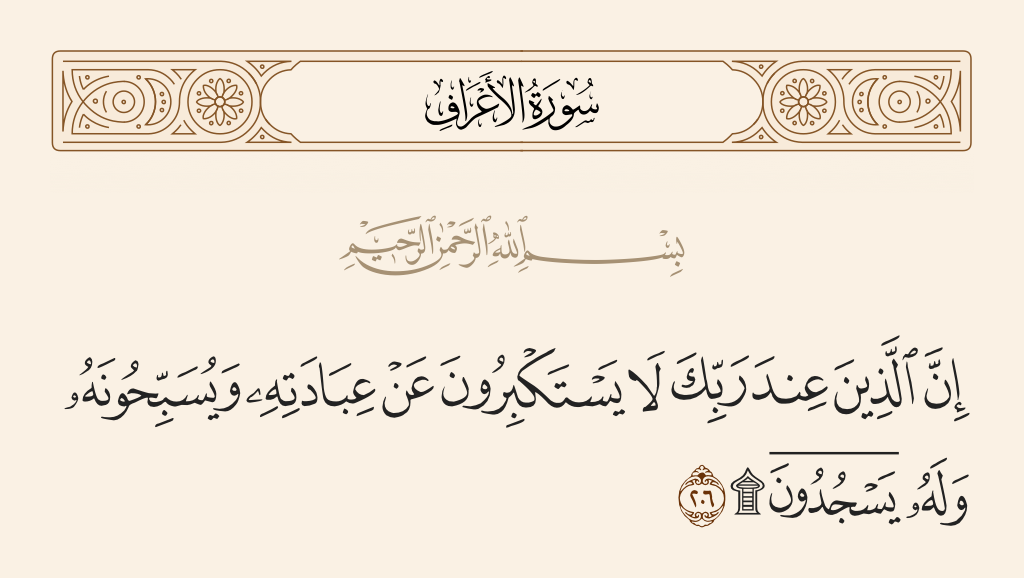 سُورَةُ الأَعْرَافِ
بِسْمِ ٱللَّهِ ٱلرَّحْمَٰنِ ٱلرَّحِيمِ
إِنَّ ٱلَّذِينَ عِندَ رَبِّكَ لَا يَسْتَكْبِرُونَ عَنْ عِبَادَتِهِۦ وَيُسَبِّحُونَهُۥ
وَلَهُۥ يَسْجُدُونَ ۩ ٢٠٦